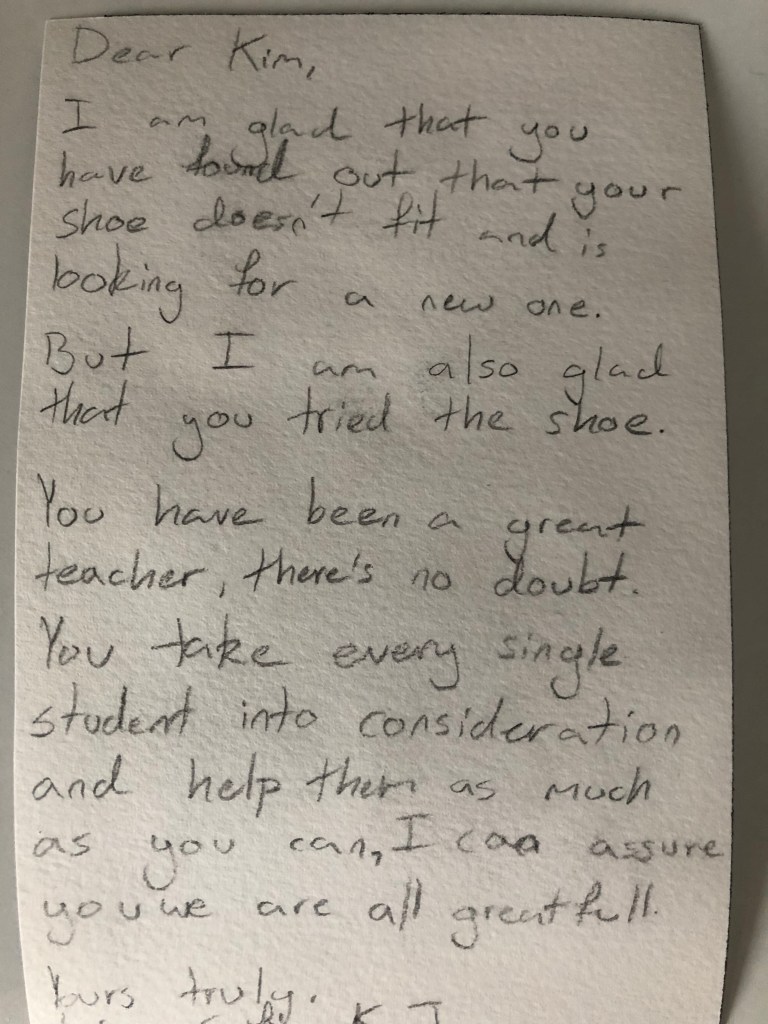 Dear Kim,
I am glad that you
have found out that your
shoe doesn't fit and is
looking for a new one.
But I am also glad
that you tried the shoe.
You have been a great
teacher, there's no doubt.
You take every single
student into consideration
and help them as much
as you can, I can assure
you we are all greatfull.
Yours truly.
K J